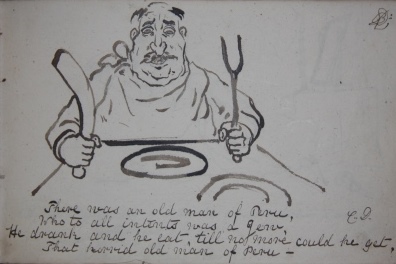 There was an old man of Peru,
Who to all intents was a Jew.
He drank and he eat, till no more could he get,
That horrid old man of Peru —